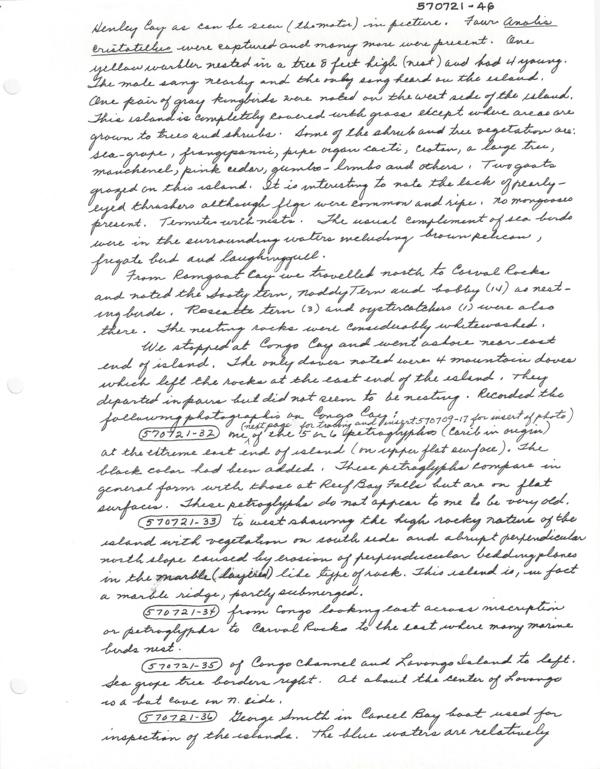 570721-46
Henley Cay as can be seen (thomater) in picture. Four Anolis
cristatellus were captured and many more were present. One
yellow warbler nested in a tree 8 feet high (nest) and had 4 young.
The male sang nearby and the only song heard on the island.
One pair of gray kingbirds were noted on the west side of the island.
This island is completely covered with grass except where areas are
grown to trees and shrubs. Some of the shrub and tree vegetation are:
sea-grape, frangipanni, pipe organ cacti, croton, a large tree,
manchenel, pink cedar, gumbo-limbo and others. Two goats
grazed on this island. It is interesting to note the lack of pearly-
eyed thrashers although figs were common and ripe. No mongooses
present. Termites with nests. The usual complement of sea birds
were in the surrounding waters including brown pelican,
frigate bird and laughing gull.
From Ramgoat Cay we travelled north to Carval Rocks
and noted the Sooty tern, Noddy Tern and bobby (14) as nest-
ing birds. Roseatte tern (3) and oystercatchers (1) were also
there. The nesting rocks were considerably whitewashed.
We stopped at Congo Cay and went ashore near east
end of island. The only doves noted were 4 mountain doves
which left the rocks at the east end of the island. They
departed in pairs but did not seem to be nesting. Recorded the
following photographs on Congo Cay:
(next page for tracing and insert 570709-17 for insert of photo)
570721-32 one of the 5 or 6 petroglyphs (Carib in origin)
at the extreme east end of island (on upper flat surface). The
black color had been added. These petraglyphs compare in
general form with those at Reef Bay Falls but are on flat
surfaces. These petroglyphs do not appear to me to be very old.
570721-33 to west showing the high rocky nature of the
island with vegetation on south side and abrupt perpendicular
north slope caused by erosion of perpendicular bedding planes
in the marble (layered) like type of rock. This island is, in fact
a marble ridge, partly submerged.
570721-34 from Congo looking east across inscription
or petroglyphs to Carval Rocks to the east where many marine
birds nest.
570721-35 of Congo Channel and Lovongo Island to left.
Sea grape tree borders right. At about the center of Lovongo
is a bat cave on N. side.
570721-36 George Smith in Caneel Bay boat used for
inspection of the islands. The blue waters are relatively